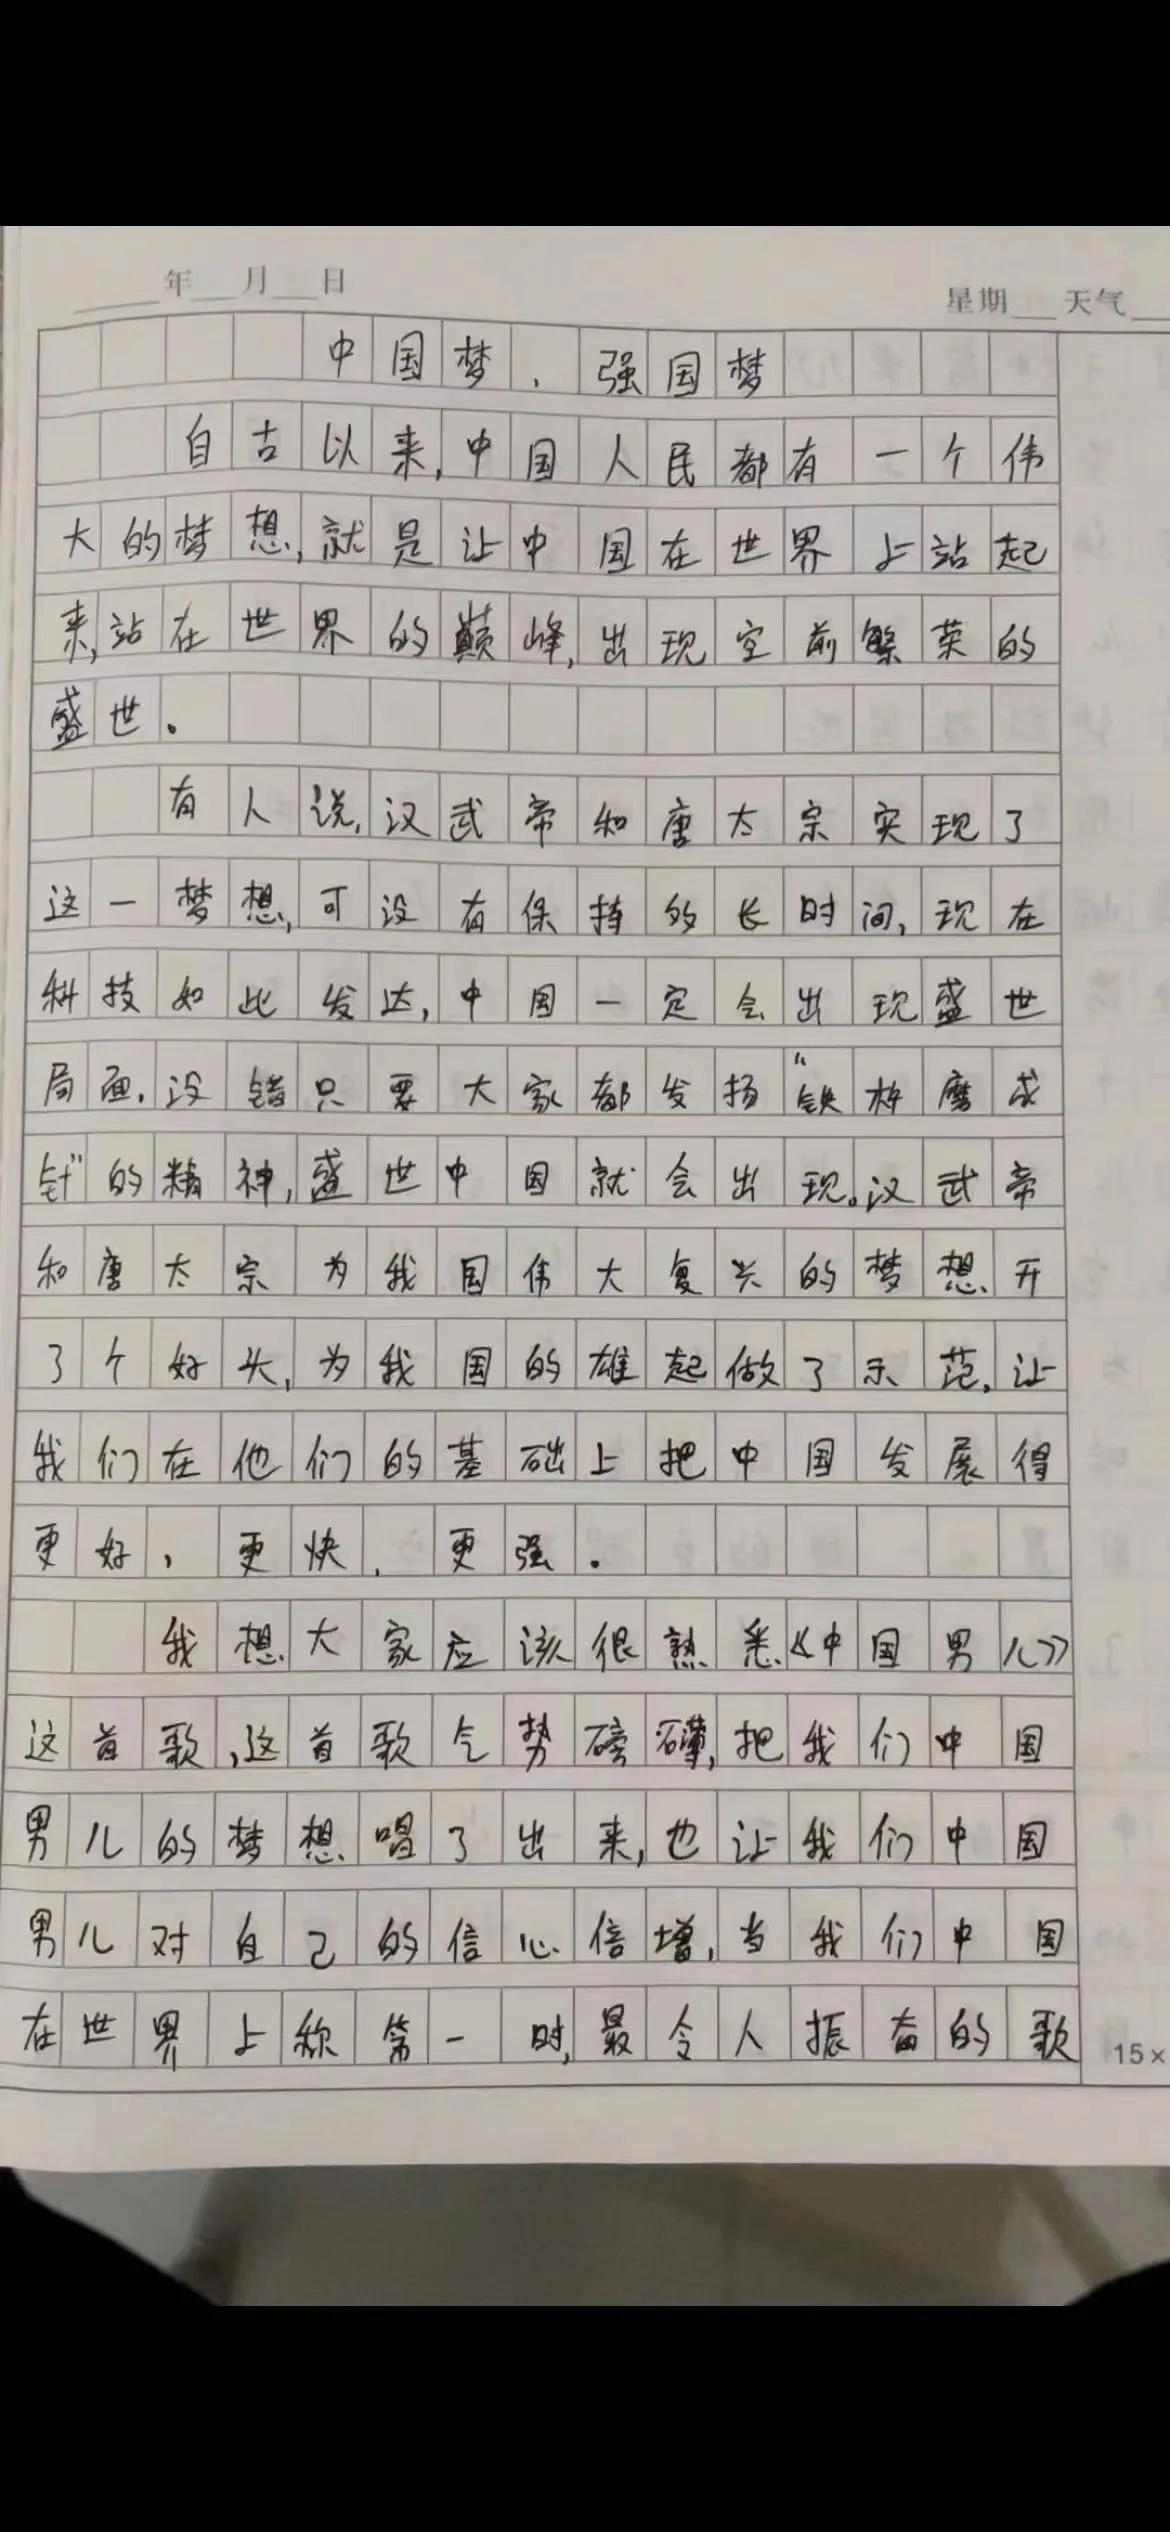 年 月 日 星期 天气
中国梦、强国梦
自古以来,中国人民都有一个伟
大的梦想,就是让中国在世界上站起
来,站在世界的巅峰,出现空前繁荣的
盛世。
有人说,汉武帝和唐太宗实现了
这一梦想,可没有保持的长时间,现在
科技如此发达,中国一定会出现盛世
局面,没错只要大家都发扬“铁杵磨成
针”的精神,盛世中国就会出现。汉武帝
和唐太宗为我国伟大复兴的梦想开
了个好头,为我国的雄起做了示范,让
我们在他们的基础上把中国发展得
更好,更快,更强。
我想大家应该很熟悉《中国男儿》
这首歌,这首歌气势磅礴,把我们中国
男儿的梦想唱了出来,也让我们中国
男儿对自己的信心倍增,当我们中国
在世界上称第一时,最令人振奋的歌
15×